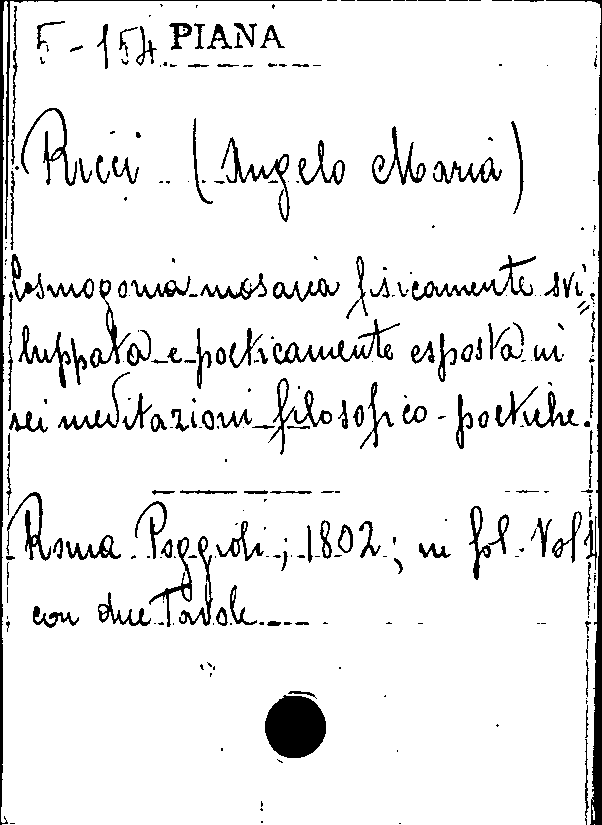 5-154 PIANA
Ricci (Angelo Maria)
Cosmogonia mosaica fisicamente svi=
luppata e poeticamente esposta in
sei meditazioni filosofico-poetiche.
Roma Poggioli; 1802; in fol. Vol 1
con due Tavole